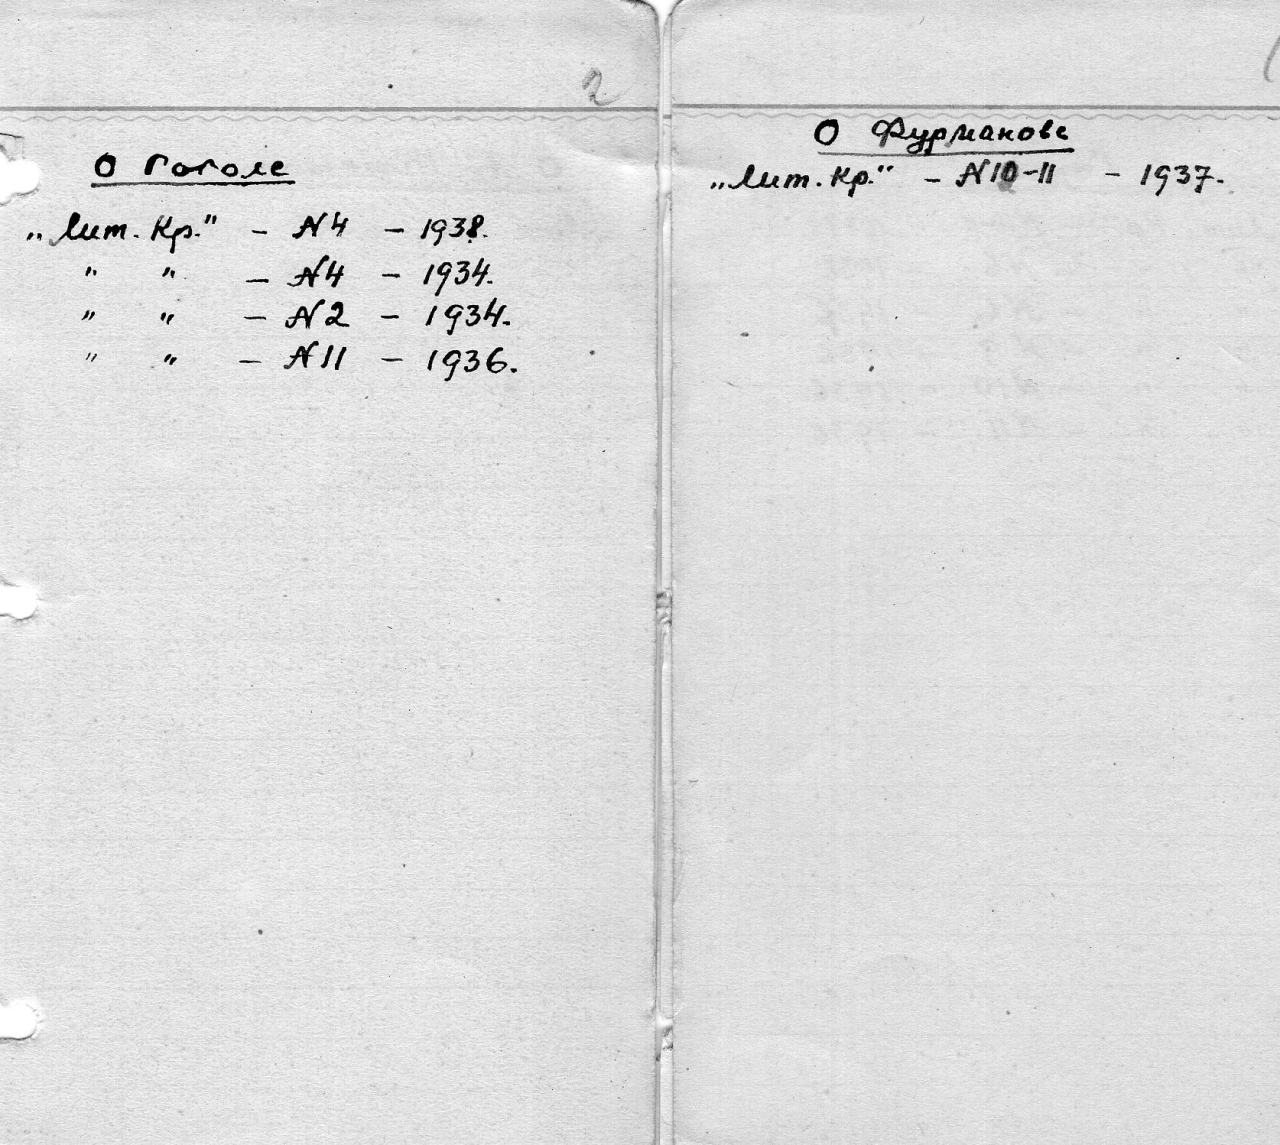 2
О Гоголе
„Лит. Кр.“ – N4 – 1938.
„ „ – N4 – 1934.
„ „ – N2 – 1934.
„ „ – N11 – 1936.
О Фурманове
„Лит. Кр.“ – N10-11 – 1937.